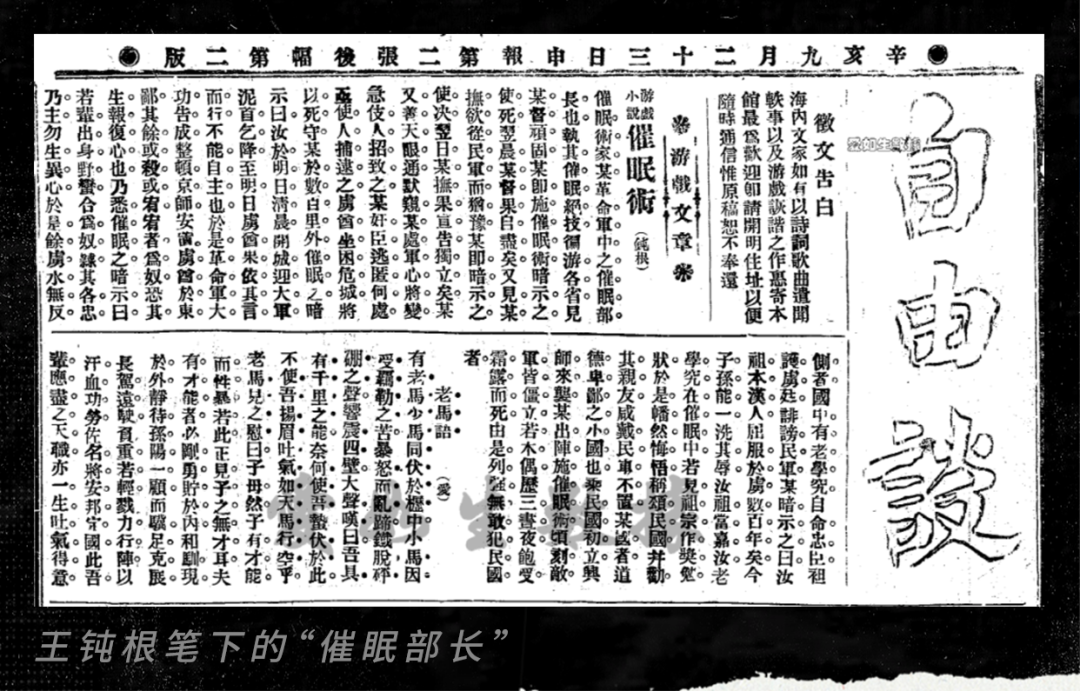 辛亥九月二十三日申報第二張後幅第二版
自由談
徵文告白
海內文家如有以詩詞歌曲遺聞
軼事以及游戲詼諧之作惠寄本
館最爲歡迎卽請開明住址以便
隨時通信惟原稿恕不奉還
游戲文章
游戲小說 催眠術 (鈍根)
催眠術家某革命軍中之催眠部
長也執其催眠絕技徧游各省見
某督頑固某卽施催眠術暗示之
使死翌晨某督果自盡矣又見某
撫欲從民軍而猶豫某卽暗示之
使决翌日某撫果宣告獨立矣某
又善天眼通默窺某處軍心將變
急伎人招致之某奸臣逃匿何處
亟使人捕逮之虜酋坐困危城將
以死守某於數百里外催眠之暗
示曰汝於明日清晨開城迎大軍
泥首乞降至明日虜酋果依其言
而行不能自主也於是革命軍大
功告成整頓京師安置虜酋於東
鄙其餘或殺或宥宥者爲奴恐其
生報復心也乃悉催眠之暗示曰
若輩出身野蠻合爲奴隸其各忠
乃主勿生異心於是餘虜永無反
側者國中有老學究自命忠臣袒
護虜廷誹謗民軍某暗示之曰汝
祖本漢人屈服於虜數百年矣今
子孫能一洗其辱汝祖當嘉汝老
學究在催眠中若見祖宗作獎勉
狀於是幡然悔悟稱頌民國并勸
其親友咸戴民軍不置某國者道
德卑鄙之小國也乘民國初立興
師來襲某出陣施催眠術頃刻敵
軍皆僵立若木偶歷三晝夜飽受
霜露而死由是列强無敢犯民國
者
老馬語 (愛)
有老馬少馬同伏於櫪中小馬因
受羈勒之苦暴怒而亂蹄鐵脫砰
硼之聲響震四壁大聲嘆曰吾具
有千里之能奈何使吾蟄伏於此
不使吾揚眉吐氣如天馬行空乎
老馬兒之慰曰子毋然子有才能
而性暴若此正見子之無才耳夫
有才能者必剛勇貯於內和馴現
於外靜待孫陽一顧而驥足克展
長駕遠駛負重若輕戮力行陣以
汗血功勞佐名將安邦定國此吾
輩應盡之天職亦一生吐氣得意
王钝根笔下的“催眠部长”